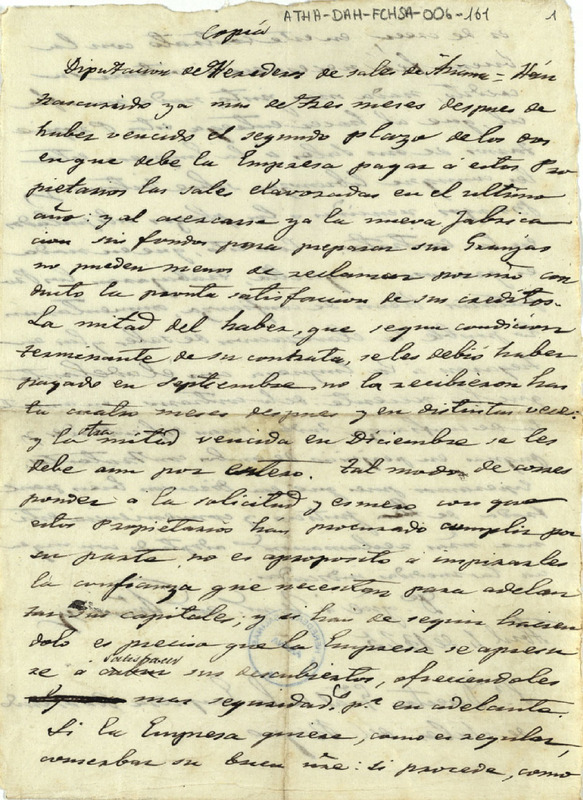 ATHA-DAH-FCHSA-006-161
1
Copia
Diputacion de Herederos de sales de Añana = Han
trascurrido ya mas de tres meses despues de
haber vencido el segundo plazo de los dos
en que debe la Empresa pagar a estos Pro
pietarios las sales elavoradas en el ultimo
año: y al acercarse ya la nueva fabrica
cion sin fondos para preparar sus Granjas
no pueden menos de reclamar por mi con
ducto la pronta satisfaccion de sus creditos.
La mitad del haber, que segun condicion
terminante de su contrata, se les debió haber
pagado en septiembre, no la recibieron has
ta cuatro meses despues y en distintas veces:
y la otra mitad vencida en Diciembre se les
debe aun por entero. Tal modo de corres
ponder a la solicitud y esmero con que
estos Propietarios han procurado cumplir por
su parte, no es aproposito a inspirarles
la confianza que necesitan para adelan
tar sus capitales, y si han de seguir hacien
dolo es preciso que la Empresa se apresu
re á satisfacer sus descubiertos, ofreciendoles
mas seguridad p.ª en adelante.
Si la Empresa quiere, como es regular,
conserbar su buen nre: si procede, como